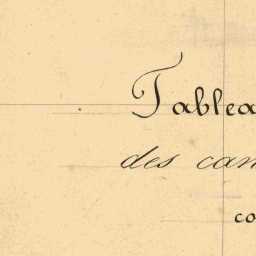 Tablea
des can
co